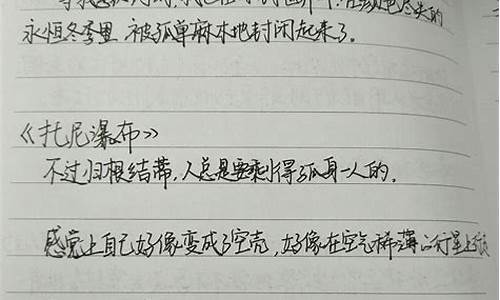 永恒冬季里,被孤单麻木地封闭起来了。
《托尼瀑布》
不过归根结蒂,人总是要剩得孤身一人的。
感觉上自己好像变成了空壳,好像在空气稀薄的行星上